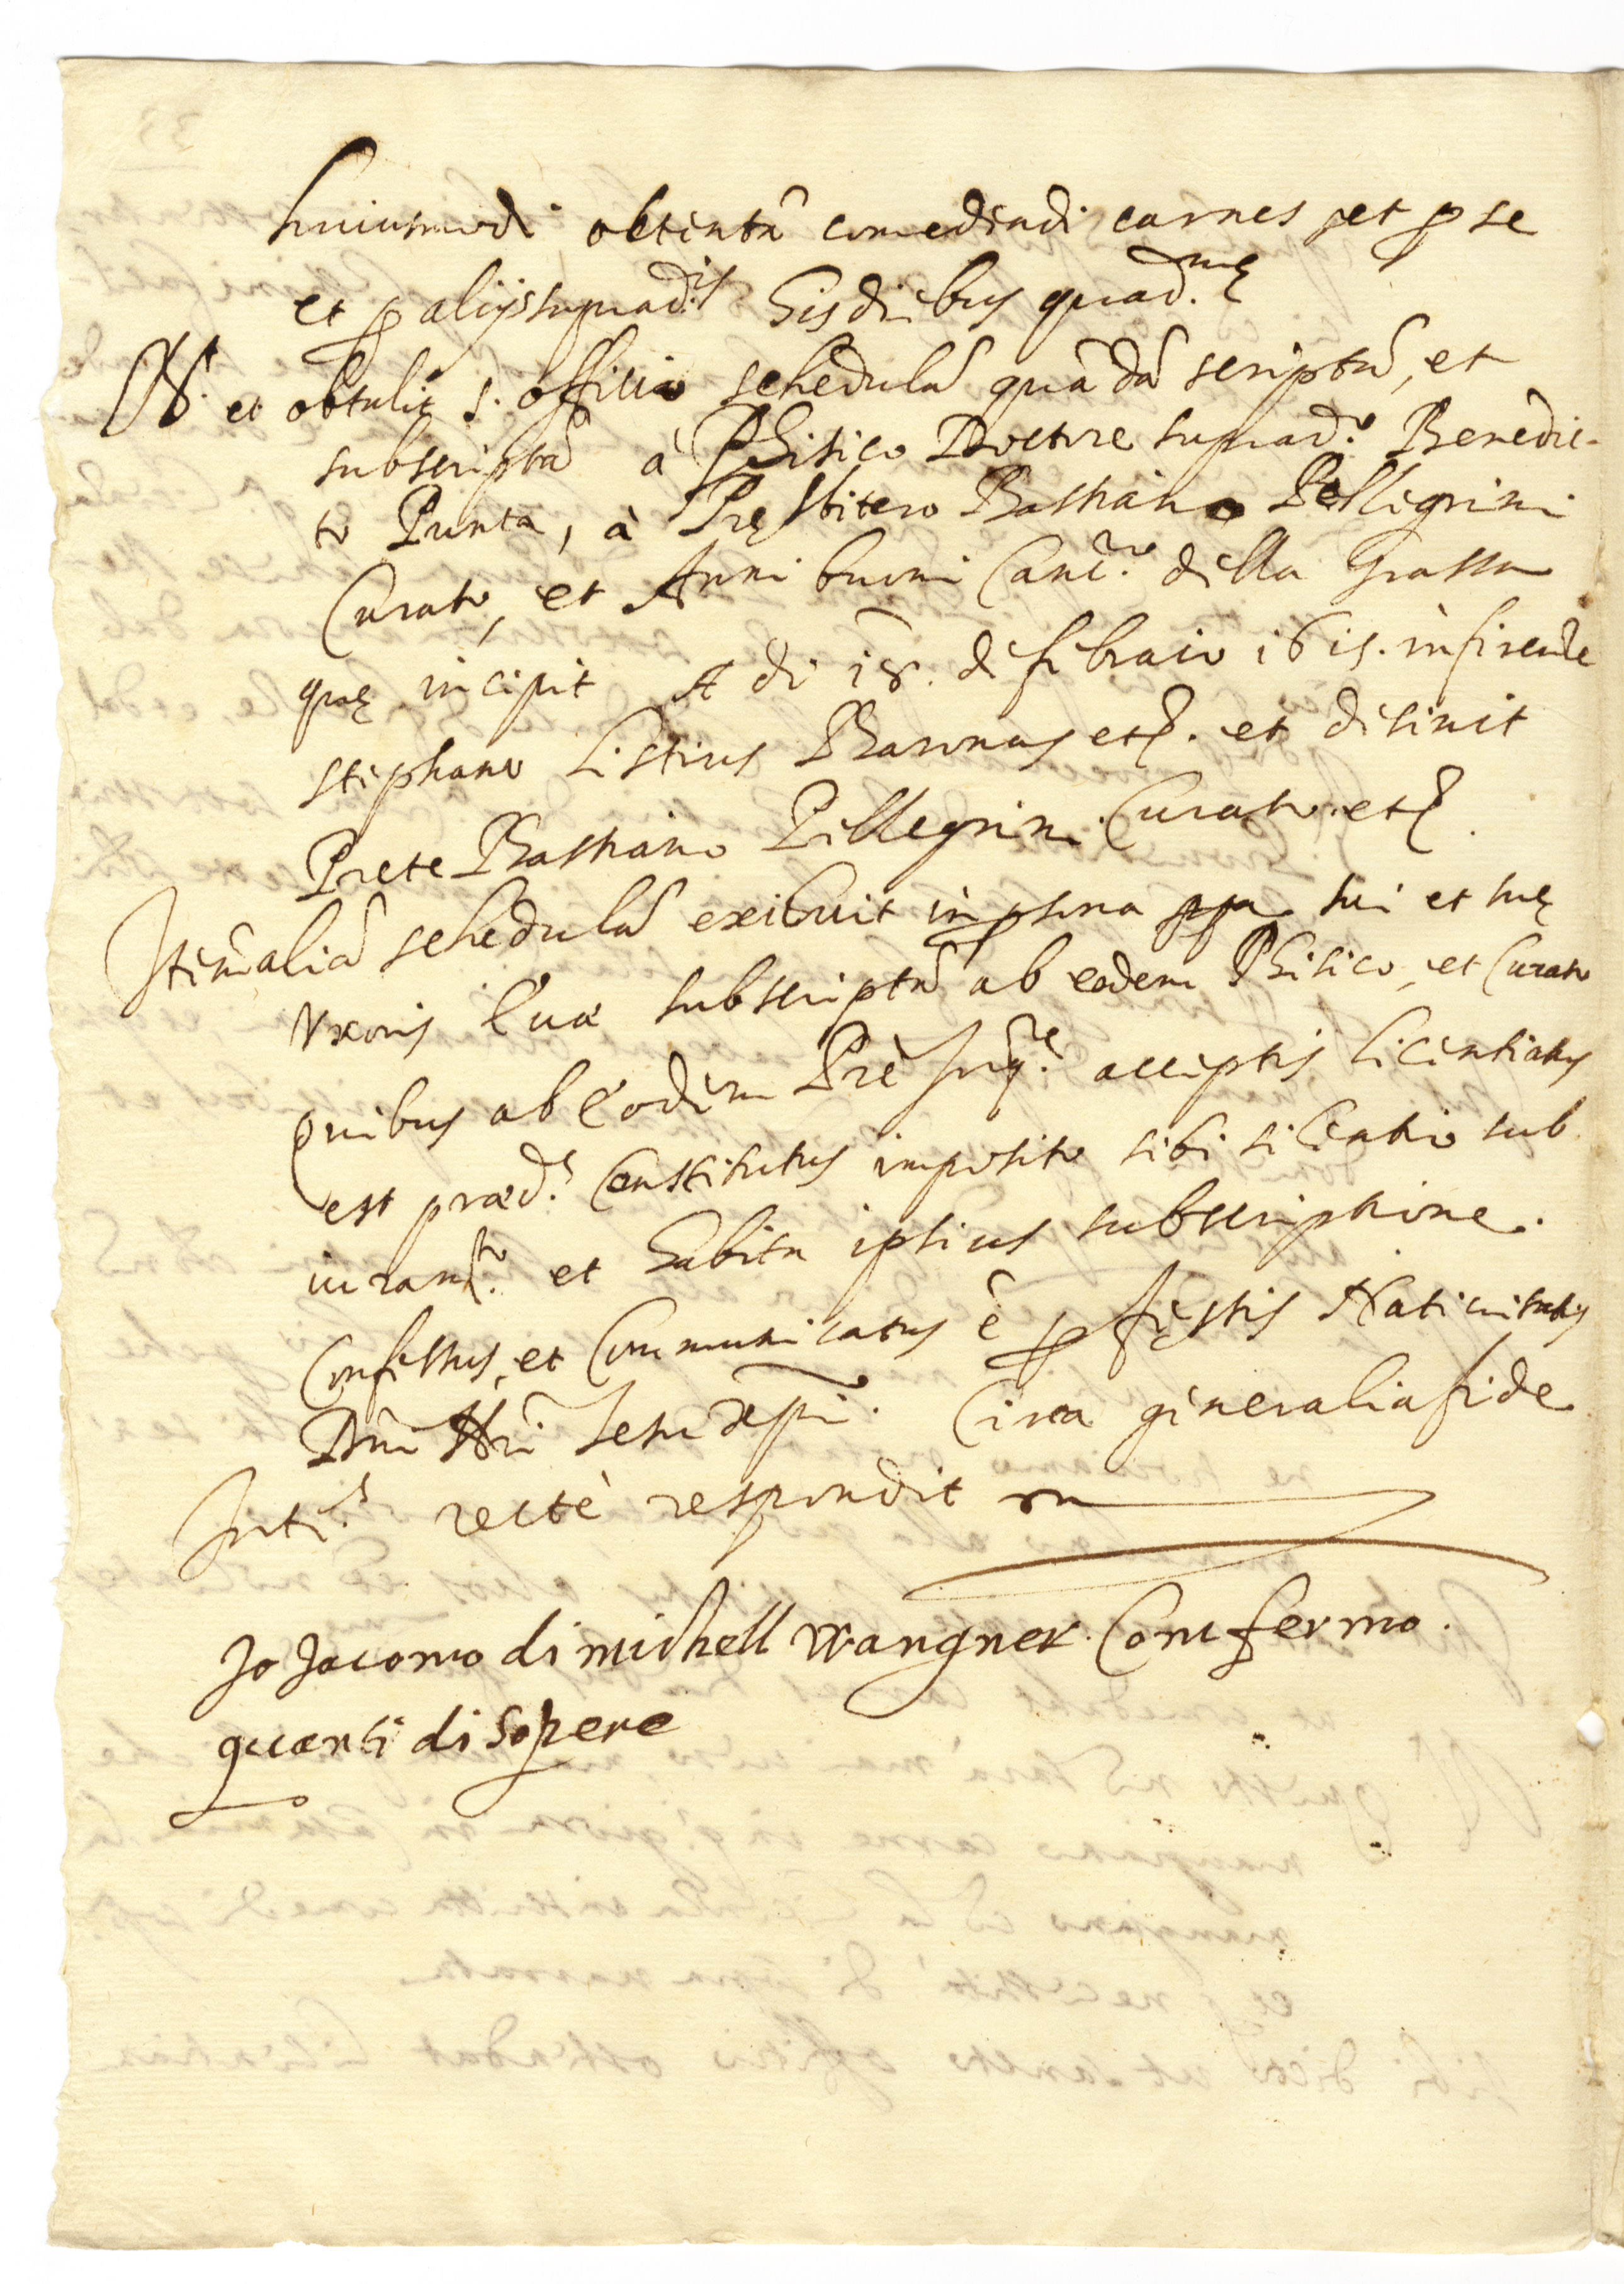 huiusmodi obtentã comedendi carnes et p se
et p alijs suprad.is his diebus quad.mę
R. et obtulit S. Officio schedulã quãdã scriptã, et
subscriptã à Phisico Doctore suprad.o Benedic-
to Punta, à Pręsbitero Bastiano Pellegrini
Curato, et Anni buoni Canc.ro della Grassa
quę incipit A di 18. di febraio 1615. infirende
stephano Listius Baronus etc. et desinit
Prete Bastiano Pellegrini Curato. etc.
Itẽ aliã schedulã exibuit in psona ppa sui et suę
Vxoris Eua subscriptã ab eodem Phisico, et Curato
quibus ab eodem Prẽ Inq.re acceptis licentiatus
est præd.s Constitutus imposito sibi silentio sub
iuram.to et habita ipsius subscriptione.
Confessus, et Communicatus ẽ p festis Natiuitatis
Dñi Nri Iesu xpi. Circa generalia fidei
Int.s rectè respondit
Jo Jacomo di michell wangner. Comfermo.
quanti di sopere